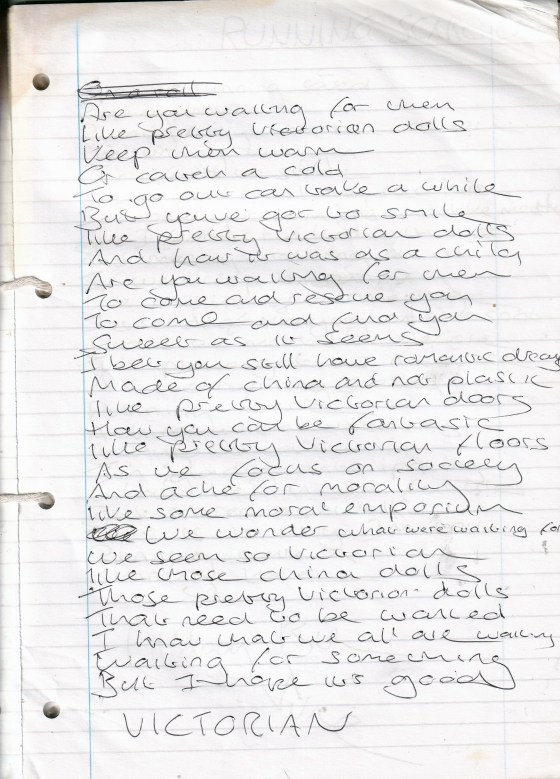 RUNNING SCARED
On a call
Are you waiting for men
Like pretty Victorian dolls
Keep them warm
Or catch a cold
To go out can take a while
But youve got to smile
like pretty Victorian dolls
And how it was as a child
Are you waiting for men
To come and rescue you
To come and find you
Sweet as it seems
I bet you still have romantic dreams
Made of china and not plastic
like pretty Victorian doors
How you can be fantastic
like pretty Victorian floors
As we focus on society
And ache for morality
like some moral emporium
We wonder what were waiting for
We seem so Victorian
like those china dolls
Those pretty Victorian dolls
That need to be wanted
I know that we all are waiting
Waiting for something
But I hope its good
VICTORIAN